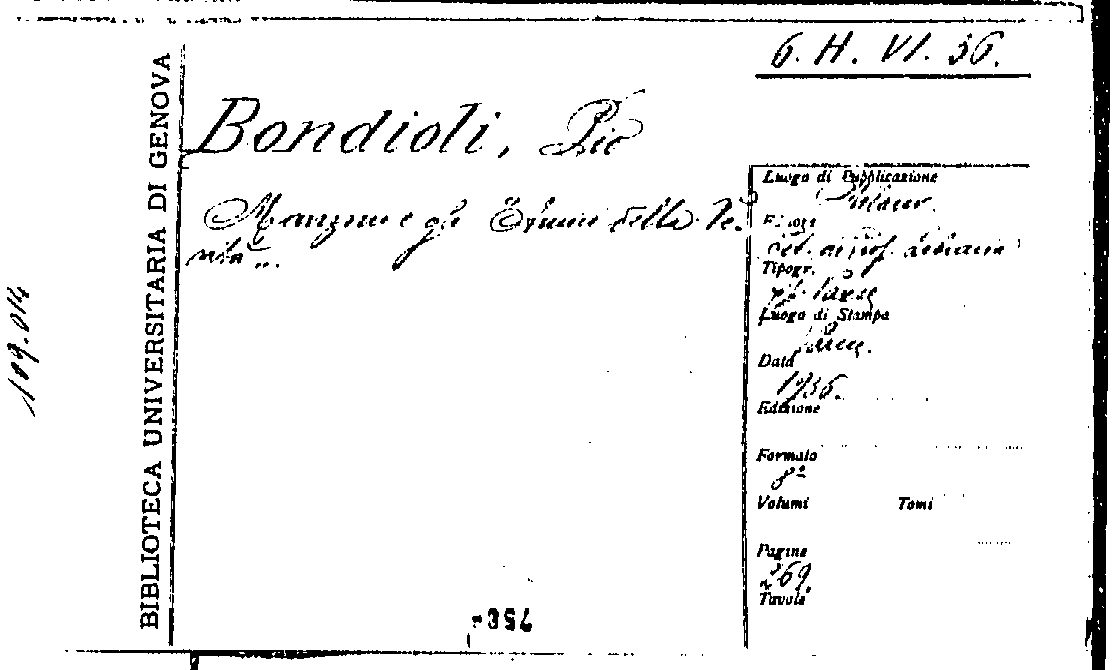 6. H. VI. 36.
BIBLIOTECA UNIVERSITARIA DI GENOVA
109.014
Bondioli, Pio
Manzoni e gli "Amici della Ve-
rità".
Luogo di Pubblicazione
Milano.
Editore
Ist. di prof.
Tipogr.
Luogo di Stampa
Data
1936.
Edizione
Formato
8º
Volumi Tomi
Pagine
269.
Tavole